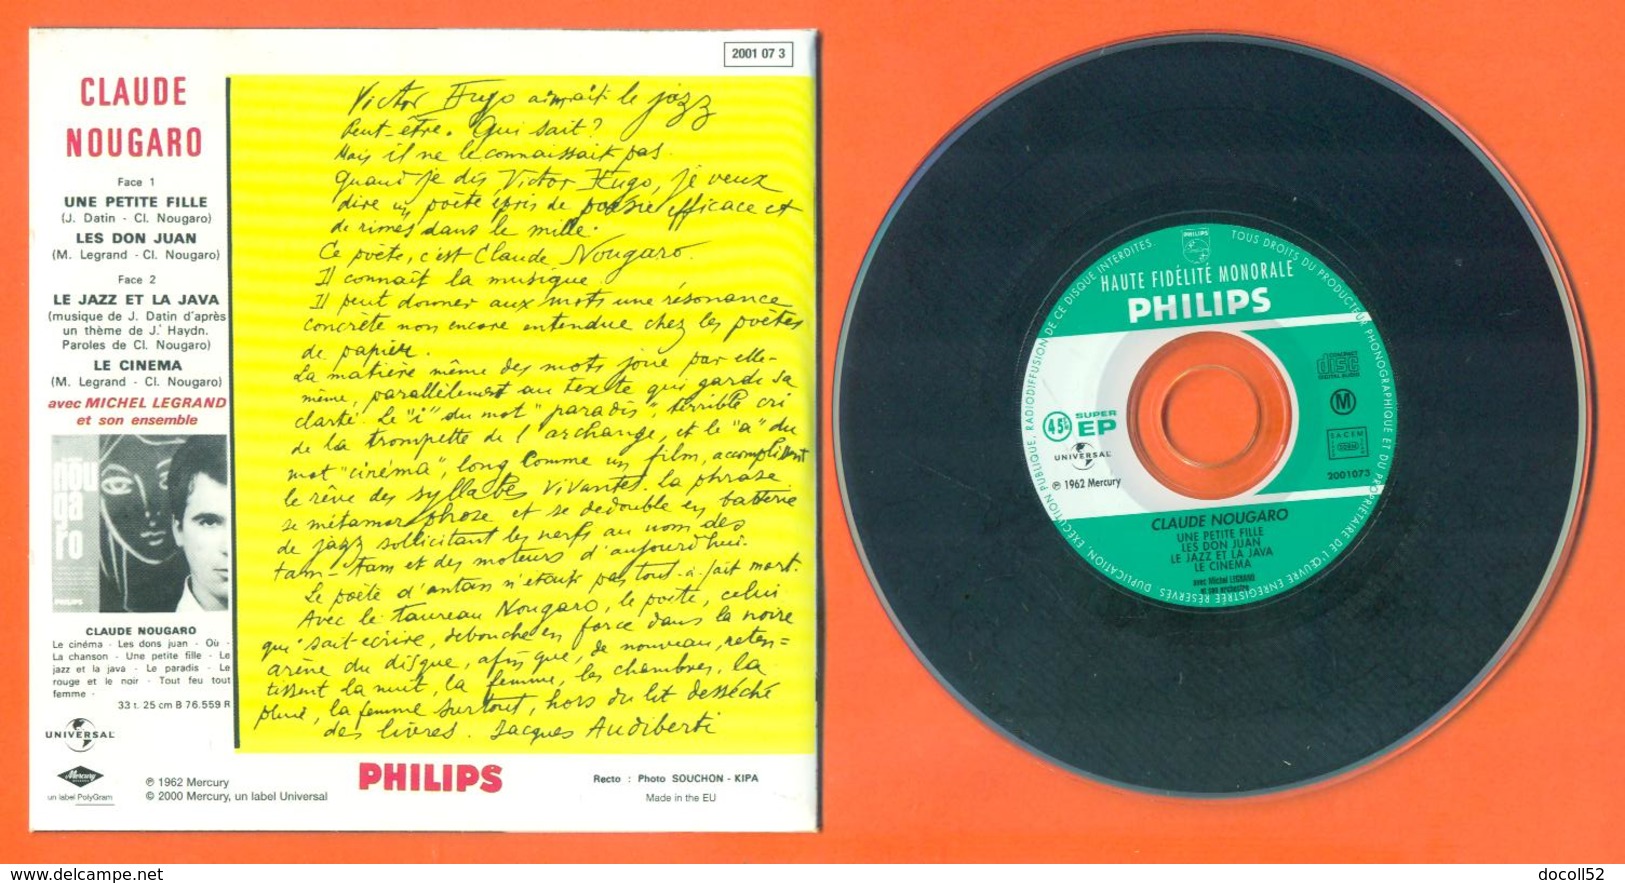 2001 07 3
CLAUDE
NOUGARO
Face 1
UNE PETITE FILLE
(J. Datin - Cl. Nougaro)
LES DON JUAN
(M. Legrand - Cl. Nougaro)
Face 2
LE JAZZ ET LA JAVA
(musique de J. Datin d'après
un thème de J. Haydn.
Paroles de Cl. Nougaro)
LE CINEMA
(M. Legrand - Cl. Nougaro)
avec MICHEL LEGRAND
et son ensemble
nou
ga
ro
PHILIPS
CLAUDE NOUGARO
Le cinéma - Les dons juan - Où -
La chanson - Une petite fille - Le
jazz et la java - Le paradis - Le
rouge et le noir - Tout feu tout
femme -
33 t. 25 cm B 76.559 R
UNIVERSAL
Mercury
un label PolyGram
℗ 1962 Mercury
© 2000 Mercury, un label Universal
Victor Hugo aimait le jazz
Peut-être. Qui sait?
Mais il ne le connaissait pas.
Quand je dis Victor Hugo, je veux
dire un poète épris de poésie efficace et
de rimes dans le mille.
Ce poète, c'est Claude Nougaro.
Il connaît la musique.
Il peut donner aux mots une résonance
concrète non encore entendue chez les poètes
de papier.
La matière même des mots joue par elle-
même, parallèlement au texte qui garde sa
clarté. Le "i" du mot "paradis", terrible cri
de la trompette de l'archange, et le "a" du
mot "cinéma", long comme un film, accomplissent
le rêve des syllabes vivantes. La phrase
se métamorphose et se dédouble en batterie
de jazz sollicitant les nerfs au nom des
tam-tam et des moteurs d'aujourd'hui.
Le poète d'antan n'était pas tout-à-fait mort.
Avec le taureau Nougaro, le poète, celui
qui sait écrire, débouche en force dans la noire
arène du disque, afin que, de nouveau, reten=
tissent la nuit, la femme, les chambres, la
pluie, la femme surtout, hors du lit desséché
des livres. Jacques Audiberti
PHILIPS
Recto : Photo SOUCHON - KIPA
Made in the EU
PHILIPS
HAUTE FIDÉLITÉ MONORALE
PHILIPS
TOUS DROITS DU PRODUCTEUR PHONOGRAPHIQUE ET DU PROPRIÉTAIRE DE L'ŒUVRE ENREGISTRÉE RÉSERVÉS. DUPLICATION, EXÉCUTION PUBLIQUE, RADIODIFFUSION DE CE DISQUE INTERDITES.
COMPACT
disc
DIGITAL AUDIO
M
SACEM
2001073
45t SUPER
EP
UNIVERSAL
℗ 1962 Mercury
CLAUDE NOUGARO
UNE PETITE FILLE
LES DON JUAN
LE JAZZ ET LA JAVA
LE CINEMA
avec Michel LEGRAND
et son ensemble
www.delcampe.net
docoll52